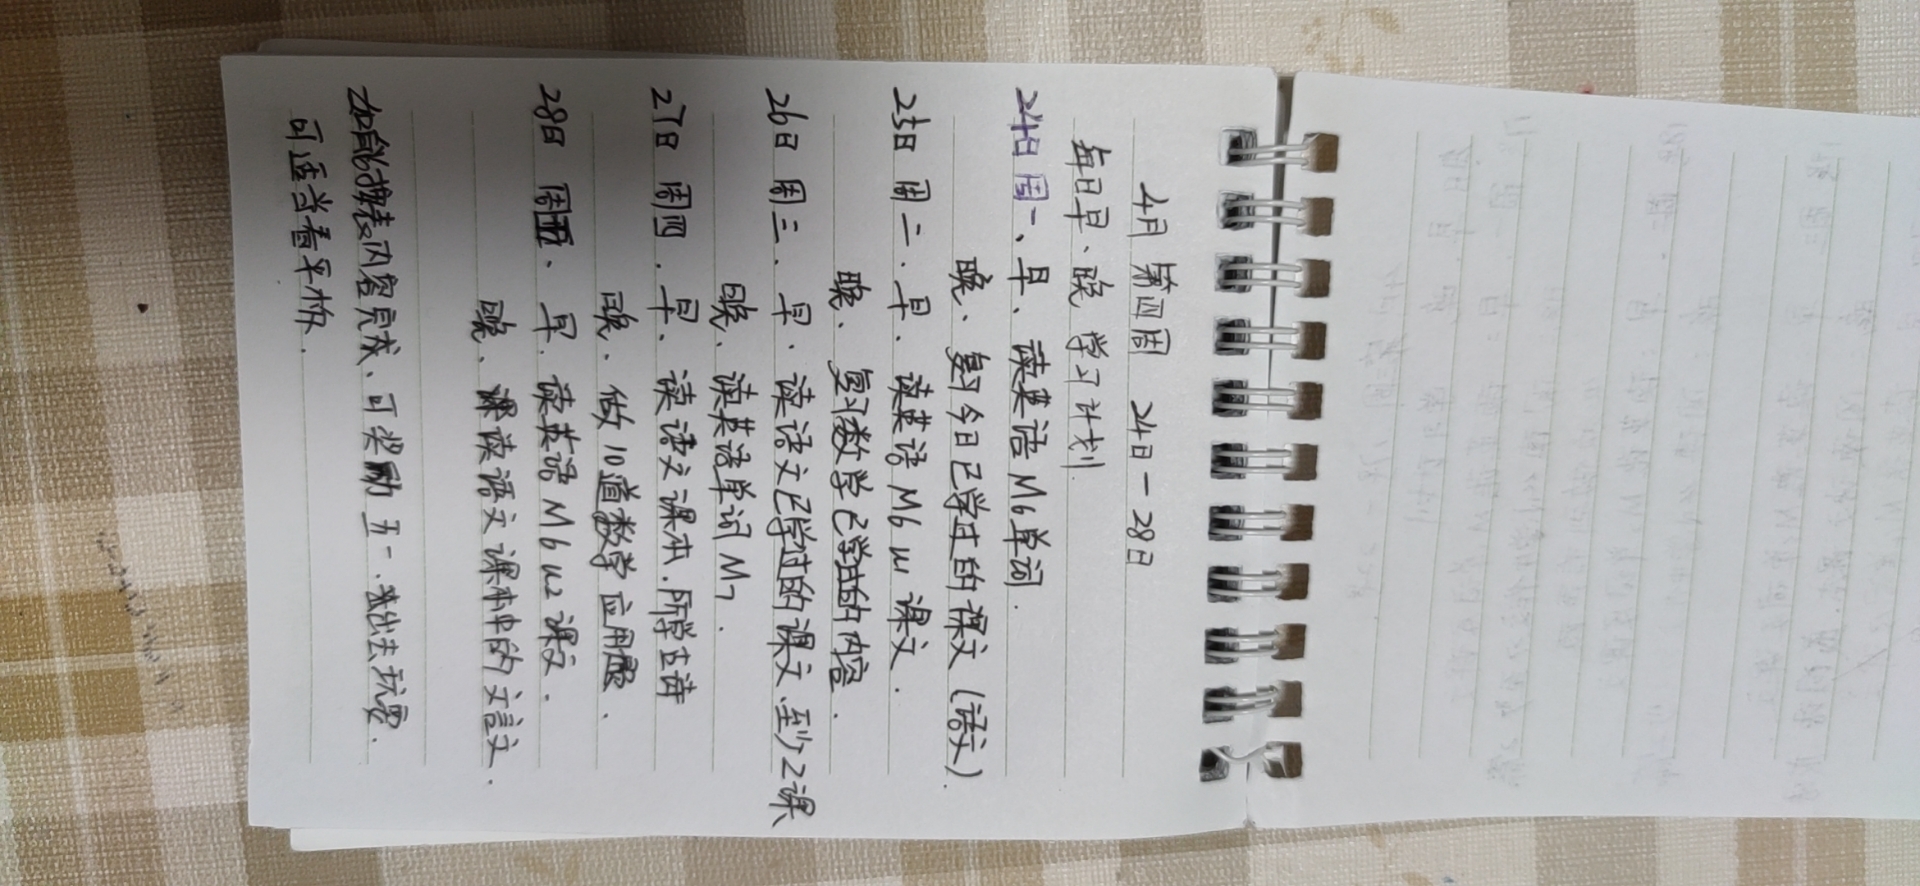 4月 第四周 24日-28日
每日早、晚 学习计划
24日 周一、早、读英语M6单词.
晚、复习今日已学过的课文(语文).
25日 周二、早、读英语M6 u1 课文.
晚、复习数学已学过的内容.
26日 周三、早、读语文已学过的课文、至少2课
晚、读英语单词M7.
27日 周四、早、读语文课本、所学古诗
晚、做10道数学应用题.
28日 周五、早、读英语M6 u2 课文.
晚、读语文课本中的文言文.
如能按表内容完成、可奖励五一、出去玩耍.
可适当看平板.